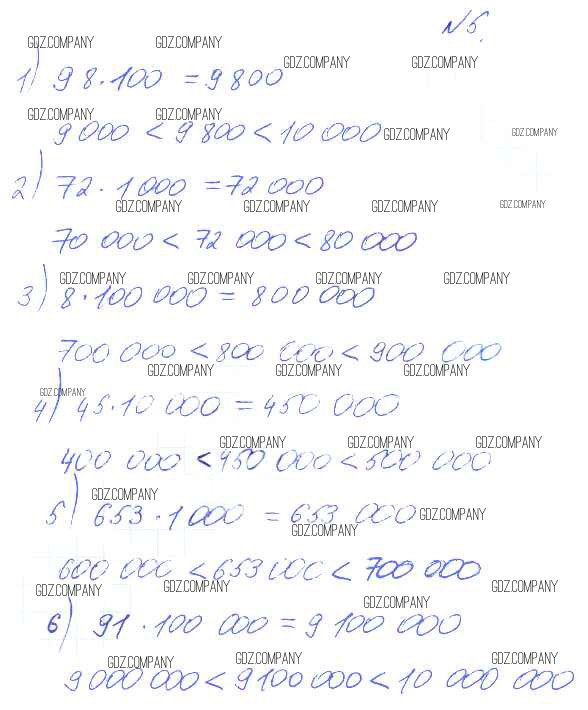 №5.
GDZ.COMPANY GDZ.COMPANY GDZ.COMPANY GDZ.COMPANY
1) 98·100 = 9800
GDZ.COMPANY GDZ.COMPANY
9000 < 9800 < 10000 GDZ.COMPANY GDZ.COMPANY
2) 72·1000 = 72000
GDZ.COMPANY GDZ.COMPANY GDZ.COMPANY GDZ.COMPANY
70 000 < 72 000 < 80 000
GDZ.COMPANY GDZ.COMPANY GDZ.COMPANY GDZ.COMPANY
3) 8·100 000 = 800 000
700 000 < 800 000 < 900 000
GDZ.COMPANY GDZ.COMPANY GDZ.COMPANY
GDZ.COMPANY
4) 45·10 000 = 450 000
GDZ.COMPANY GDZ.COMPANY GDZ.COMPANY
400 000 < 450 000 < 500 000
GDZ.COMPANY
5) 653·1000 = 653 000 GDZ.COMPANY
GDZ.COMPANY
600 000 < 653 000 < 700 000
GDZ.COMPANY GDZ.COMPANY GDZ.COMPANY GDZ.COMPANY
6) 91·100 000 = 9 100 000
GDZ.COMPANY GDZ.COMPANY GDZ.COMPANY
9 000 000 < 9 100 000 < 10 000 000